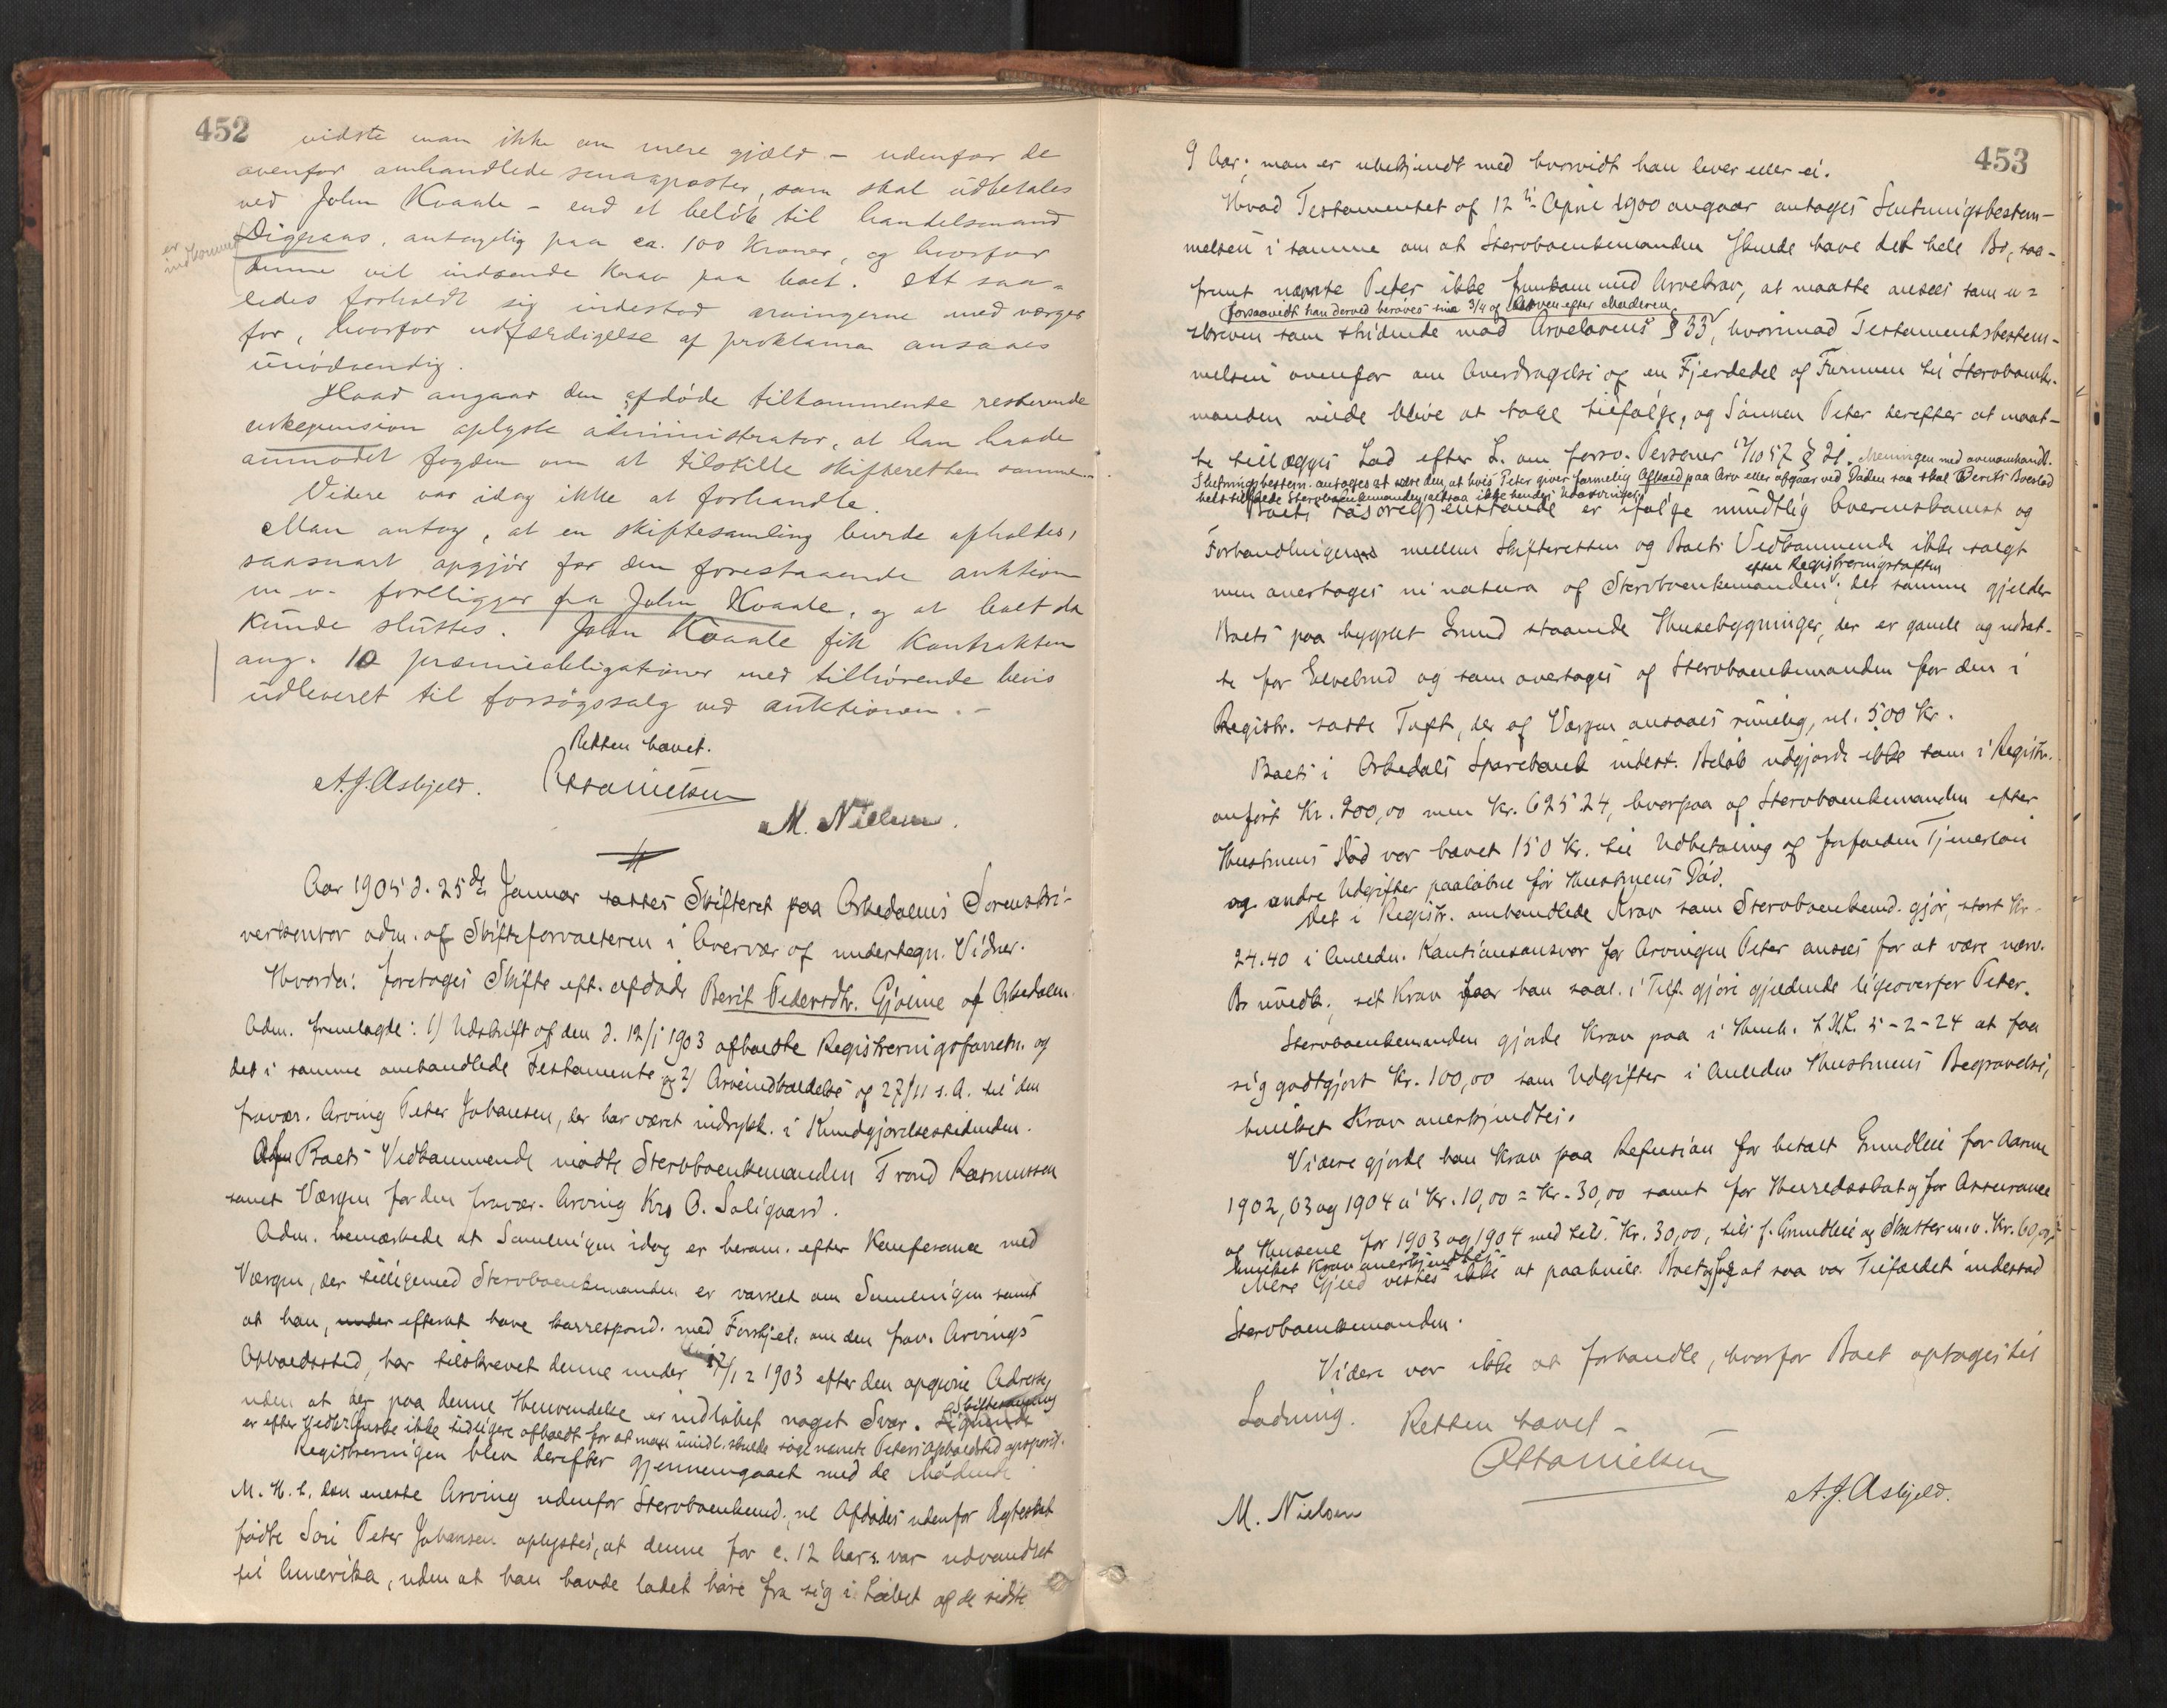 452
vidste man ikke om mere gjæld – udenfor de
ovenfor omhandlede smaaposter, som skal udbetales
ved John Kvaale – end et beløb til handelsmand
er indkommet
Digraas, antagelig paa ca. 100 Kroner, og hvorfor
denne vil indsende Krav paa boet. At saa-
ledes forholdt sig indestod arvingerne med værger
for, hvorfor udfærdigelse af proklama ansaaes
unødvendig.
Hvad angaar den afdøde tilkommende resterende
enkepension oplyste administrator, at han havde
anmodet fogden om at tilstille skifteretten samme.
Videre var idag ikke at forhandle.
Man antog, at en skiftesamling burde afholdes,
saasnart opgjør for den forestaaende auktion
m. v. foreligger fra John Kvaale, og at boet da
kunde sluttes. John Kvaale fik Kontrakten
ang. 10 præmieobligationer med tilhørende bevis
udleveret til forsøgssalg ved auktionen. –
Retten hævet.
A. J. Asbjeld. Otto Nielsen
M. Nielsen.
Aar 1905 d. 25de Januar sattes Skifteret paa Orkedalens Sorenskri-
verkontor adm. af Skifteforvalteren i Overvær af undertegn. Vidner.
Hvorda: foretages Skifte eft. afdøde Berit Pedersdtr. Gjølme af Orkedalen.
Adm. fremlagde: 1) Udskrift af den d. 12/1 1903 afholdte Registreringsforretn. og
det i samme omhandlede Testamente og 2) Arveindkaldelse af 27/11 s. A. til den
fravær. Arving Peter Johansen, der har været indrykk. i Kundgjørelsestidenden.
Af Boets Vedkommende mødte Stervboenkemanden Trond Rasmussen
samt Værgen for den fravær. Arving Kro O. Soligaard.
Adm. bemærkede at Samlingen idag er beram. efter Konferance med
Værgen, der tilligemed Stervboenkemanden er varslet om Samlingen samt
at han, under efterat have korrespond. med Forskjel. om den frav. Arvings
Opholdssted, har tilskrevet denne under 17/12 1903 efter den opgivne Adresse,
uden at der paa denne Henvendelse er indløbet noget Svar. Skiftesamling
er efter Vedk. Ønske ikke tidligere afholdt for at man imidl. skulde søge nævnte Peters Opholdssted opspord.
Registreringen blev derefter gjennemgaaet med de Mødende.
M. H. t. den eneste Arving udenfor Stervboenkemd., nl. Afdødes udenfor Ægteskab
fødte Søn Peter Johansen oplystes, at denne for c. 12 Aar s. var udvandret
til Amerika, uden at han havde ladet høre fra sig i Løbet af de sidste
453
9 Aar; man er ubekjendt med hvorvidt han lever eller ei.
Hvad Testamentet af 12te April 1900 angaar antages Slutningsbestem-
melsen i samme om at Stervboenkemanden skulde have det hele Bo, saa-
fremt nævnte Peter ikke fremkom med Arvekrav, at maatte ansees som u-
forsaavidt han derved berøves sine 3/4 af Arven efter Moderen
skreven som stridende mod Arvelovens § 33, hvorimod Testamentsbestem-
melsen ovenfor om Overdragelse af en Fjerdedel af Formuen til Stervboenke-
manden vilde blive at tage tilfølge, og Sønnen Peter derefter at maat-
te tillægges Lod efter L. om forsv. Personer 12/10 57 § 21. Meningen med ovenomhandl.
Slutningsbestem. antages at være den, at hvis Peter giver formelig Afkald paa Arv eller afgaar ved Døden saa skal Berits Boeslod
helt tilfalde Stervboenkemanden, altsaa ikke hendes Udarvinger.
Boets Løsøregjenstande er ifølge mundtlig Overenskomst og
Forhandlinger mellem Skifteretten og Boets Vedkommende ikke solgt
efter Registreringstaxten
men overtages in natura af Stervboenkemanden; det samme gjelder
Boets paa bygslet Grund staaende Husebygninger, der er gamle og udsat-
te for Elvebrud og som overtages af Stervboenkemanden for den i
Registr. satte Taxt, der af Værgen ansaaes rimelig, nl. 500 Kr.
Boets i Orkedals Sparebank indest. Beløb udgjorde ikke som i Registr.
anført Kr. 900,00 men Kr. 625 24, hvorpaa af Stervboenkemanden efter
Hustruens Død var hævet 150 Kr. til Udbetaling af forfalden Tjenerløn
og andre Udgifter paaløbne før Hustruens Død.
Det i Registr. omhandlede Krav som Stervboenkemd. gjør, stort Kr.
24.40 i Anledn. Kautionsansvar for Arvingen Peter ansees for at være nærv.
Bo uvedk.; set Krav faar han saal. i Tilf. gjøre gjeldende ligeoverfor Peter.
Stervboenkemanden gjorde Krav paa i Henh. t. Skl. 5-2-24 at faa
sig godtgjort Kr. 100,00 som Udgifter i Anledn. Hustruens Begravelse,
hvilket Krav anerkjendtes.
Videre gjorde han Krav paa Refusion for betalt Grundleie for Aarene
1902, 03 og 1904 a' Kr. 10,00 = Kr. 30,00 samt for Herredsskat og for Assurance
af Husene for 1903 og 1904 med tils. Kr. 30,00, tils. f. Grundleie og Skatter m. v. Kr. 60,00,
hvilket Krav anerkjendtes.
Mere Gjeld vistes ikke at paahvile Boet og for at saa var Tilfældet indestod
Stervboenkemanden.
Videre var ikke at forhandle, hvorfor Boet optages til
Lodning. Retten hævet –
Otto Nielsen
M. Nielsen A. J. Asbjeld.